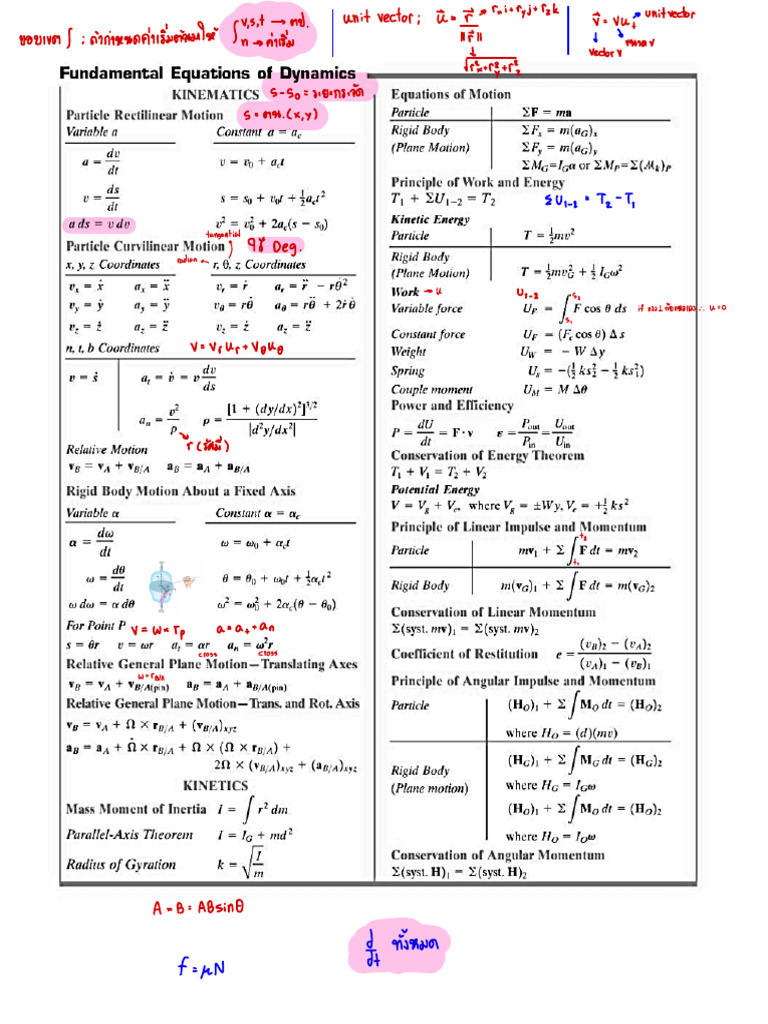 ขอบเขต ∫ ; ถ้ากำหนดค่าเริ่มต้นมาให้ ∫ v,s,t → ตข.
n → ค่าเริ่ม
unit vector ; u⃗ = r⃗ / ||r⃗|| → r_x i + r_y j + r_z k
√(r_x² + r_y² + r_z²)
v⃗ = v u_t → unit vector
vector v
ขนาด v
Fundamental Equations of Dynamics
KINEMATICS
s - s₀ = ระยะกระจัด
Particle Rectilinear Motion
s = ตน.(x,y)
Variable a Constant a = a_c
a = dv/dt v = v₀ + a_c t
v = ds/dt s = s₀ + v₀t + ½a_c t²
a ds = v dv v² = v₀² + 2a_c(s − s₀)
tangential
Particle Curvilinear Motion
Deg.
x, y, z Coordinates r, θ, z Coordinates
v_x = ẋ a_x = ẍ v_r = ṙ a_r = r̈ − rθ̇²
v_y = ẏ a_y = ÿ v_θ = rθ̇ a_θ = rθ̈ + 2ṙθ̇
v_z = ż a_z = z̈ v_z = ż a_z = z̈
n, t, b Coordinates
v = v_r u_r + v_θ u_θ
v = ṡ a_t = v̇ = v dv/ds
a_n = v²/ρ ρ = [1 + (dy/dx)²]^3/2 / |d²y/dx²|
r (รัศมี)
Relative Motion
v_B = v_A + v_B/A a_B = a_A + a_B/A
Rigid Body Motion About a Fixed Axis
Variable α Constant α = α_c
α = dω/dt ω = ω₀ + α_c t
ω = dθ/dt θ = θ₀ + ω₀t + ½α_c t²
ω dω = α dθ ω² = ω₀² + 2α_c(θ − θ₀)
For Point P
v = ω × r_p a = a_t + a_n
s = θr v = ωr a_t = αr a_n = ω²r
cross cross
Relative General Plane Motion—Translating Axes
ω×r_B/A
v_B = v_A + v_B/A(pin) a_B = a_A + a_B/A(pin)
Relative General Plane Motion—Trans. and Rot. Axis
v_B = v_A + Ω × r_B/A + (v_B/A)_xyz
a_B = a_A + Ω̇ × r_B/A + Ω × (Ω × r_B/A) +
2Ω × (v_B/A)_xyz + (a_B/A)_xyz
KINETICS
Mass Moment of Inertia I = ∫ r² dm
Parallel-Axis Theorem I = I_G + md²
Radius of Gyration k = √(I/m)
Equations of Motion
Particle ΣF = ma
Rigid Body ΣF_x = m(a_G)_x
(Plane Motion) ΣF_y = m(a_G)_y
ΣM_G = I_G α or ΣM_P = Σ(ℳ_k)_P
Principle of Work and Energy
T₁ + ΣU₁₋₂ = T₂
ΣU₁₋₂ = T₂ - T₁
Kinetic Energy
Particle T = ½mv²
Rigid Body
(Plane Motion) T = ½mv_G² + ½ I_G ω²
Work → u
U₁₋₂
Variable force U_F = ∫ F cos θ ds
s₂
s₁
Constant force U_F = (F_c cos θ) Δs
Weight U_W = − W Δy
Spring U_s = −(½ ks₂² − ½ ks₁²)
Couple moment U_M = M Δθ
Power and Efficiency
P = dU/dt = F · v ε = P_out/P_in = U_out/U_in
Conservation of Energy Theorem
T₁ + V₁ = T₂ + V₂
Potential Energy
V = V_g + V_e, where V_g = ±Wy, V_e = +½ ks²
Principle of Linear Impulse and Momentum
Particle mv₁ + Σ∫ F dt = mv₂
t₂
t₁
Rigid Body m(v_G)₁ + Σ∫ F dt = m(v_G)₂
Conservation of Linear Momentum
Σ(syst. mv)₁ = Σ(syst. mv)₂
Coefficient of Restitution e = (v_B)₂ − (v_A)₂ / (v_A)₁ − (v_B)₁
Principle of Angular Impulse and Momentum
Particle (H_O)₁ + Σ∫ M_O dt = (H_O)₂
where H_O = (d)(mv)
Rigid Body (H_G)₁ + Σ∫ M_G dt = (H_G)₂
(Plane motion) where H_G = I_G ω
(H_O)₁ + Σ∫ M_O dt = (H_O)₂
where H_O = I_O ω
Conservation of Angular Momentum
Σ(syst. H)₁ = Σ(syst. H)₂
A × B = AB sin θ
d/dt ทั้งหมด
f = μN